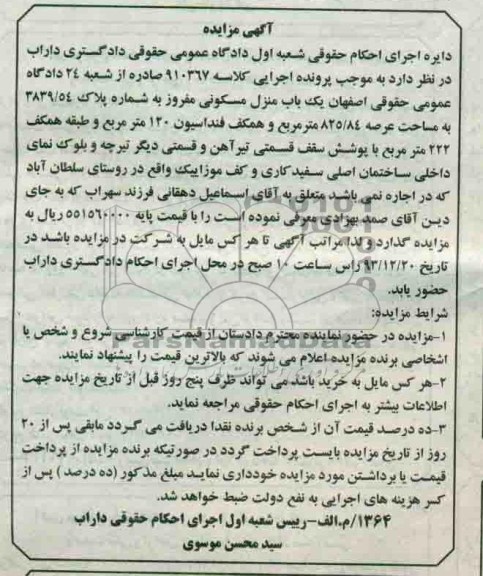 آگهی مزایده
دایره اجرای احکام حقوقی شعبه اول دادگاه عمومی حقوقی دادگستری داراب
در نظر دارد به موجب پرونده اجرایی کلاسه ۹۱۰۳۶۷ صادره از شعبه ۲۴ دادگاه
عمومی حقوقی اصفهان یک باب منزل مسکونی مفروز به شماره پلاک ۳۸۳۹/۵۴
به مساحت عرصه ۸۲۵/۸۴ مترمربع و همکف فنداسیون ۱۲۰ متر مربع و طبقه همکف
۲۲۲ متر مربع با پوشش سقف قسمتی تیرآهن و قسمتی دیگر تیرچه و بلوک نمای
داخلی ساختمان اصلی سفیدکاری و کف موزاییک واقع در روستای سلطان آباد
که در اجاره نمی باشد متعلق به آقای اسماعیل دهقانی فرزند سهراب که به جای
دین آقای صمد بهزادی معرفی نموده است را با قیمت پایه ۵۵۱۵۶۰۰۰۰ ریال به
مزایده گذارد و لذا مراتب آگهی تا هر کس مایل به شرکت در مزایده باشد در
تاریخ ۹۳/۱۲/۲۰ راس ساعت ۱۰ صبح در محل اجرای احکام دادگستری داراب
حضور یابد.
شرایط مزایده:
۱-مزایده در حضور نماینده محترم دادستان از قیمت کارشناسی شروع و شخص یا
اشخاصی برنده مزایده اعلام می شوند که بالاترین قیمت را پیشنهاد نمایند.
۲-هر کس مایل به خرید باشد می تواند ظرف پنج روز قبل از تاریخ مزایده جهت
اطلاعات بیشتر به اجرای احکام حقوقی مراجعه نماید.
۳-ده درصد قیمت آن از شخص برنده نقدا دریافت می گردد مابقی پس از ۲۰
روز از تاریخ مزایده بایست پرداخت گردد در صورتیکه برنده مزایده از پرداخت
قیمت یا برداشتن مورد مزایده خودداری نماید مبلغ مذکور (ده درصد) پس از
کسر هزینه های اجرایی به نفع دولت ضبط خواهد شد.
۱۳۶۴/م.الف-رییس شعبه اول اجرای احکام حقوقی داراب
سید محسن موسوی
ParsNamadData